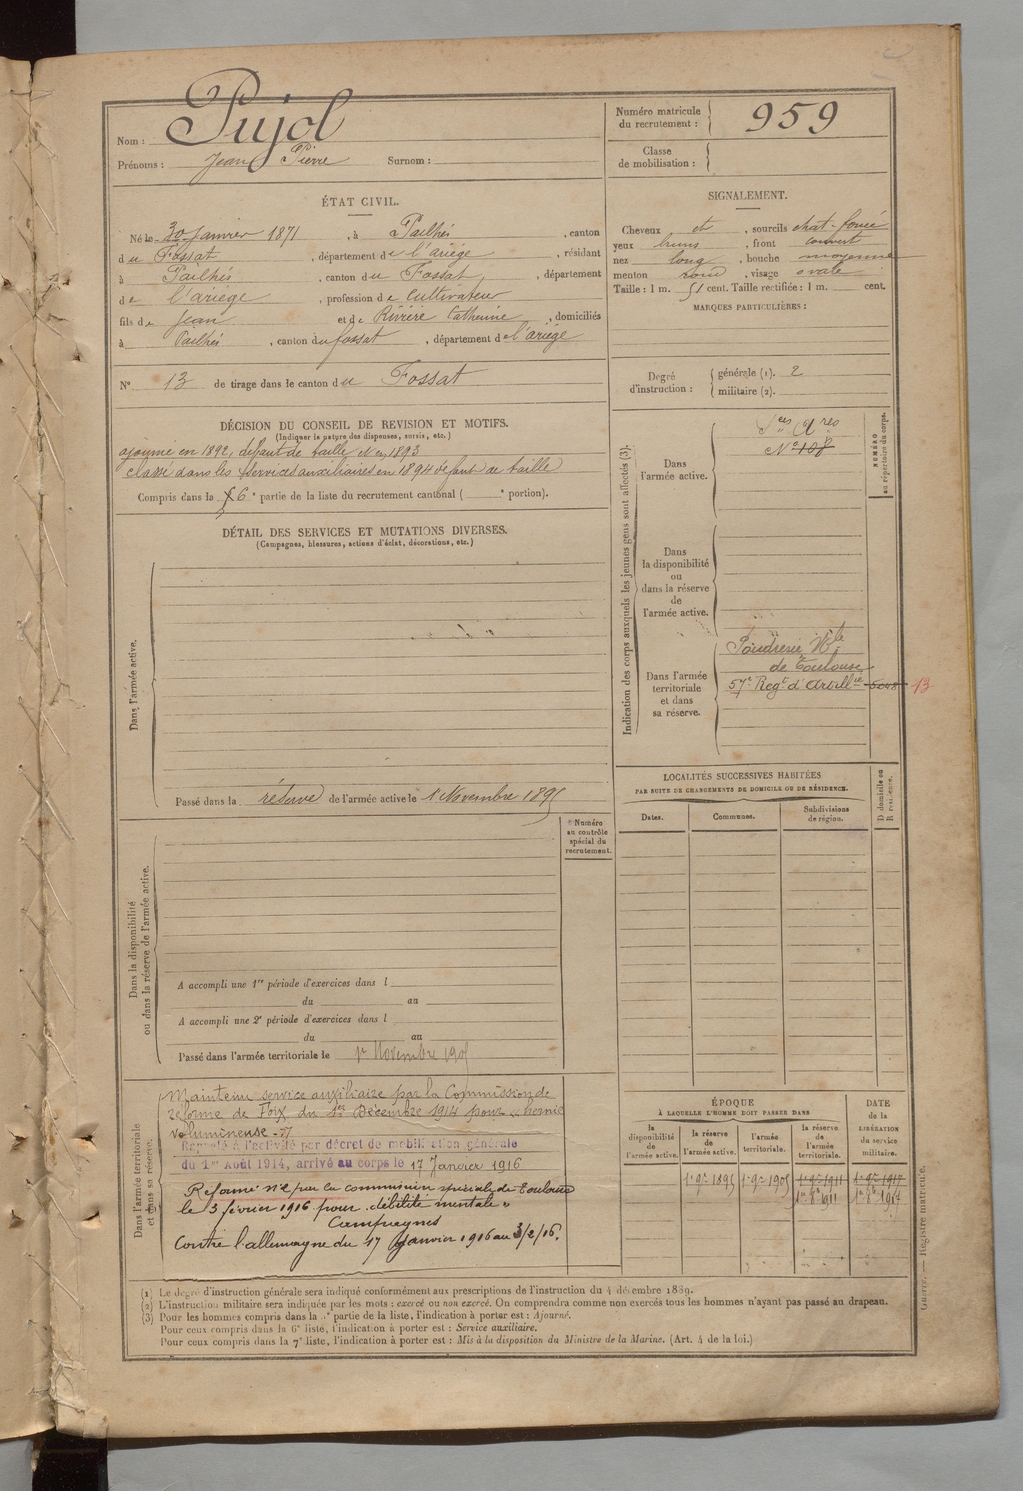 Nom : Pujol
Prénoms : Jean Pierre Surnom :
Numéro matricule du recrutement : 959
Classe de mobilisation :
ÉTAT CIVIL.
Né le 30 Janvier 1871, à Pailhés, canton
du Fossat, département de l'ariège, résidant
à Pailhés, canton du Fossat, département
de l'ariège, profession de Cultivateur
fils de Jean et de Rivière Catherine, domiciliés
à Pailhés, canton du fossat, département de l'ariège
N° 13 de tirage dans le canton du Fossat
SIGNALEMENT.
Cheveux et, sourcils chat-foncé
yeux bruns, front couvert
nez long, bouche moyenne
menton rond, visage ovale
Taille : 1 m. 51 cent. Taille rectifiée : 1 m. cent.
MARQUES PARTICULIÈRES :
Degré d'instruction : générale (1). 2
militaire (2).
DÉCISION DU CONSEIL DE REVISION ET MOTIFS.
(Indiquer la nature des dispenses, sursis, etc.)
ajourné en 1892, défaut de taille N en 1893
classé dans les services auxiliaires en 1894 défaut de taille
Compris dans la 6e partie de la liste du recrutement cantonal ( e portion).
DÉTAIL DES SERVICES ET MUTATIONS DIVERSES.
(Campagnes, blessures, actions d'éclat, décorations, etc.)
Dans l'armée active.
Passé dans la réserve de l'armée active le 1 Novembre 1895
Indication des corps auxquels les jeunes gens sont affectés (3).
NUMÉRO au répertoire du corps.
Dans l'armée active.
Sces Ares
N° 108
Dans la disponibilité ou dans la réserve de l'armée active.
Dans l'armée territoriale et dans sa réserve.
Poudrerie Nle
de Toulouse
57e Regt d'Artillie 13
LOCALITÉS SUCCESSIVES HABITÉES
PAR SUITE DE CHANGEMENTS DE DOMICILE OU DE RÉSIDENCE.
Dates. Communes. Subdivisions de région. D domicile ou R résidence.
Dans la disponibilité ou dans la réserve de l'armée active.
Numéro au contrôle spécial du recrutement.
A accompli une 1re période d'exercices dans l
du au
A accompli une 2e période d'exercices dans l
du au
Passé dans l'armée territoriale le 1er Novembre 1905
Dans l'armée territoriale et dans sa réserve.
Maintenu service auxiliaire par la Commission de
réforme de Foix du 1er Décembre 1914 pour « hernie
volumineuse »
Rappelé à l'activité par décret de mobilisation générale
du 1er Août 1914, arrivé au corps le 17 Janvier 1916
Réformé n°2 par la commission spéciale de Toulouse
le 3 février 1916 pour « débilité mentale »
Campagnes
Contre l'allemagne du 17 Janvier 1916 au 3/2/16.
ÉPOQUE
À LAQUELLE L'HOMME DOIT PASSER DANS
la disponibilité de l'armée active. la réserve de l'armée active. l'armée territoriale. la réserve de l'armée territoriale.
DATE de la LIBÉRATION du service militaire.
1 9re 1895 1 9re 1905 1 9re 1911 1 9re 1917
(1) Le degré d'instruction générale sera indiqué conformément aux prescriptions de l'instruction du 4 décembre 1889.
(2) L'instruction militaire sera indiquée par les mots : exercé ou non exercé. On comprendra comme non exercés tous les hommes n'ayant pas passé au drapeau.
(3) Pour les hommes compris dans la partie de la liste, l'indication à porter est : Ajourné.
Pour ceux compris dans la 6e liste, l'indication à porter est : Service auxiliaire.
Pour ceux compris dans la 7e liste, l'indication à porter est : Mis à la disposition du Ministre de la Marine. (Art. 4 de la loi.)
Guerre. — Registre matricule.